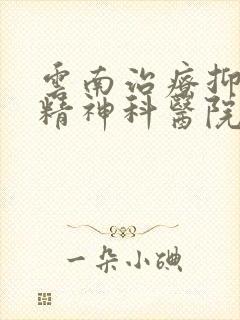 雲南治療抑
精神科醫院
一朵小碘